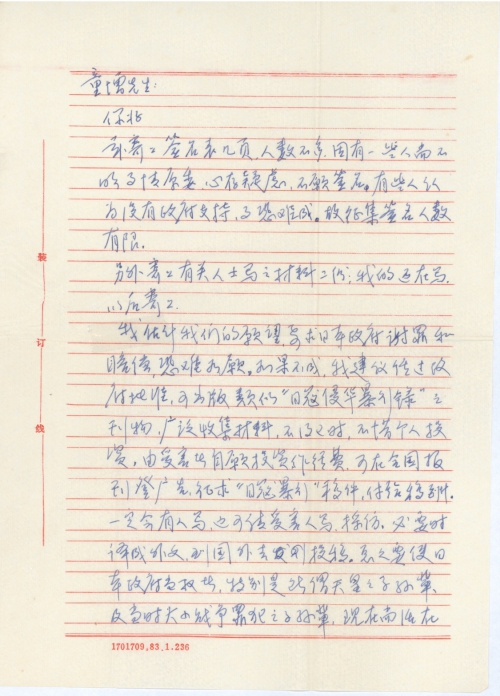 童增先生：
你好
兹寄上签名表几页，人数不多，因有一些人尚不
明了情原委，心存疑虑，不愿签名。有些人认
为没有政府支持，了恐难成。故征集签名人数
有限。
另外寄上有关人士写之材料二份，我的还在写，
以后寄上。
我估计我们的愿望，要求日本政府谢罪和
赔偿，恐难如愿。如果不成，我建议经过政
府批准，可出版类似“日寇侵华暴行录”之
刊物，广泛收集材料，不
资。由受害者自愿投资作经费，可在全国报
刊登广告，征求“日寇暴行”稿件，付给稿酬。
一定会有人写，也可使受害人写，採访。必要时
译成外文，到国外去投稿。总之要使日
本政府当权者，特别是所谓天皇之子孙辈，
及当时大小战争罪犯之子孙辈，现在尚活在
装
订
线
1701709.83.1.236